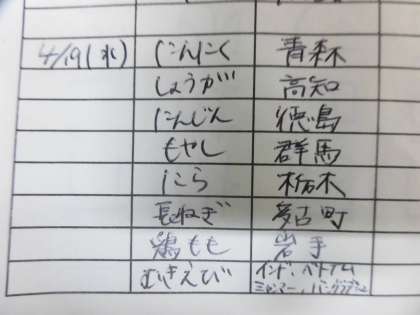 4/19(水) にんにく 青森
しょうが 高知
にんじん 徳島
もやし 群馬
にら 栃木
長ねぎ 多古町
鶏もも 岩手
むきえび インド、ベトナム
ミャンマー、バングラデシュ